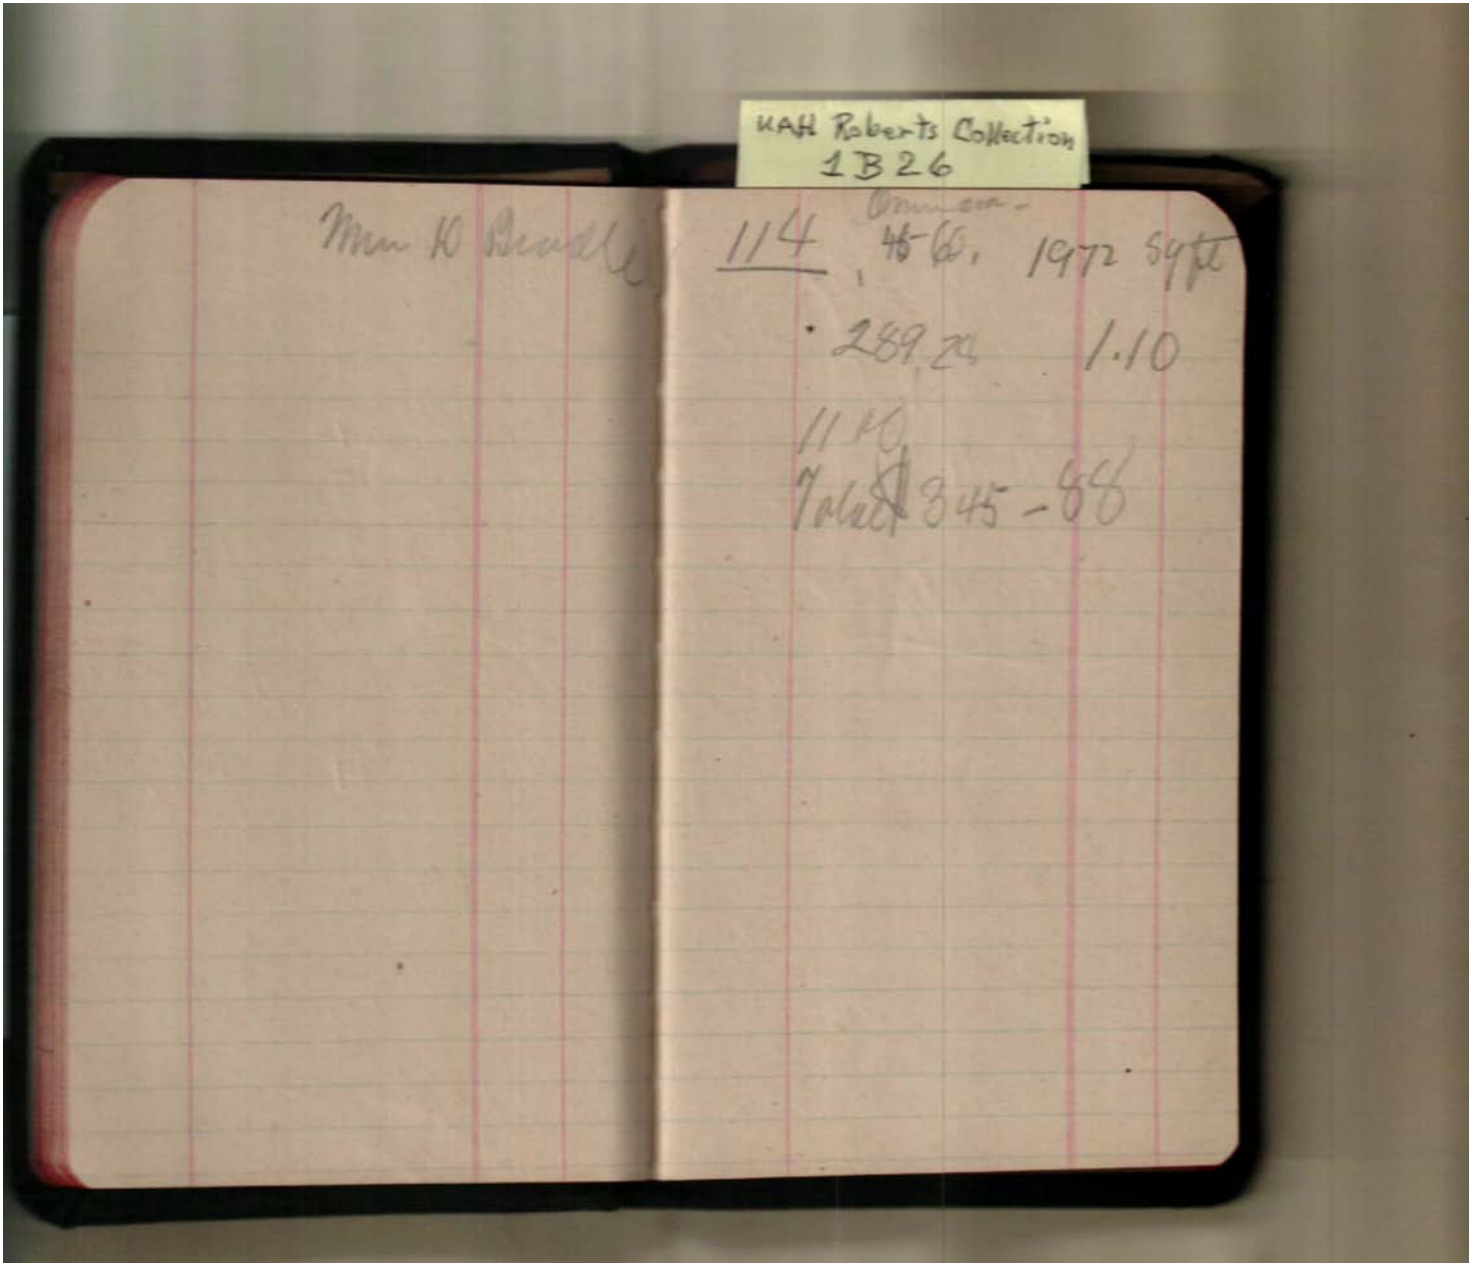 UAH Roberts Collection
1B26
114 45-60. 1972 Sqft
289.20 1.10
11 10
Total $345-88